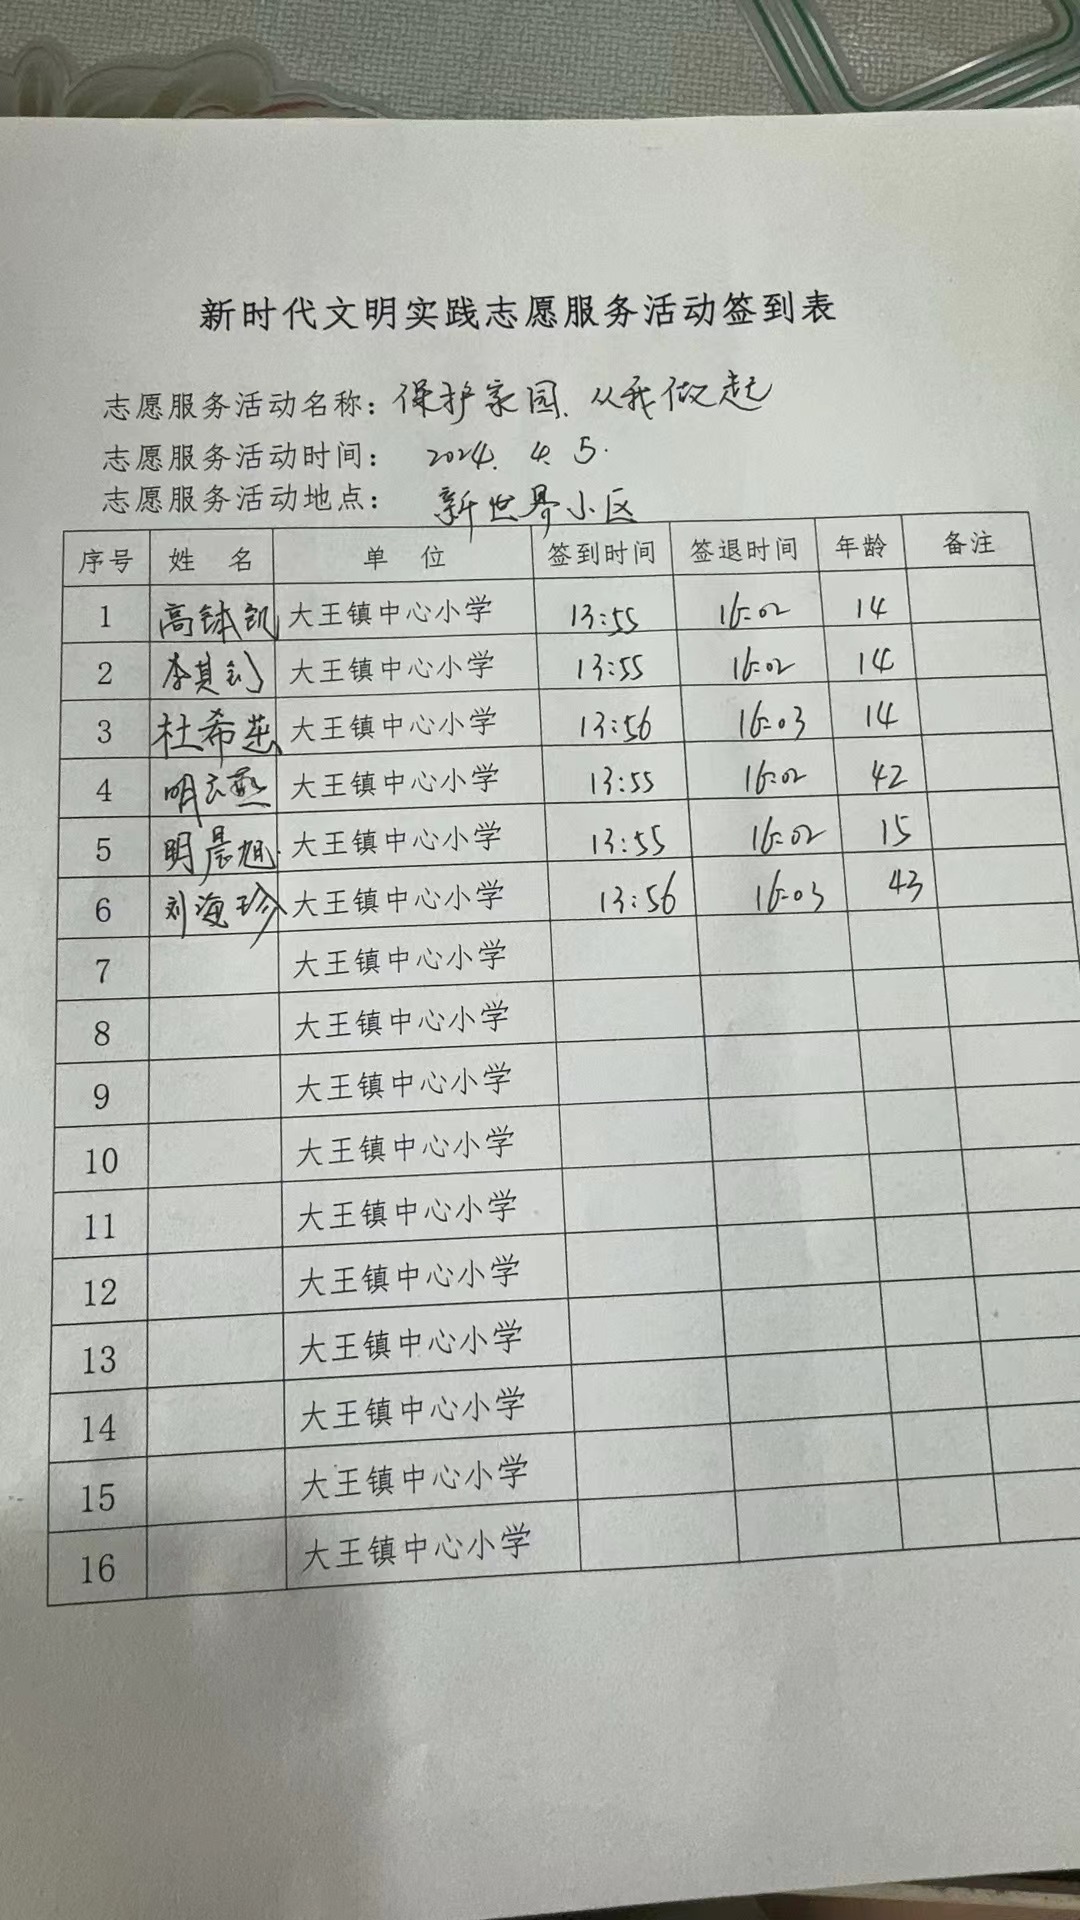 新时代文明实践志愿服务活动签到表
志愿服务活动名称：保护家园、从我做起
志愿服务活动时间： 2024. 4. 5.
志愿服务活动地点： 新世界小区
序号 姓 名 单 位 签到时间 签退时间 年龄 备注
1 高钵凯 大王镇中心小学 13:55 16:02 14
2 李其钊 大王镇中心小学 13:55 16:02 14
3 杜希 大王镇中心小学 13:56 16:03 14
4 明云燕 大王镇中心小学 13:55 16:02 42
5 明晨旭 大王镇中心小学 13:55 16:02 15
6 刘海珍 大王镇中心小学 13:56 16:03 43
7 大王镇中心小学
8 大王镇中心小学
9 大王镇中心小学
10 大王镇中心小学
11 大王镇中心小学
12 大王镇中心小学
13 大王镇中心小学
14 大王镇中心小学
15 大王镇中心小学
16 大王镇中心小学